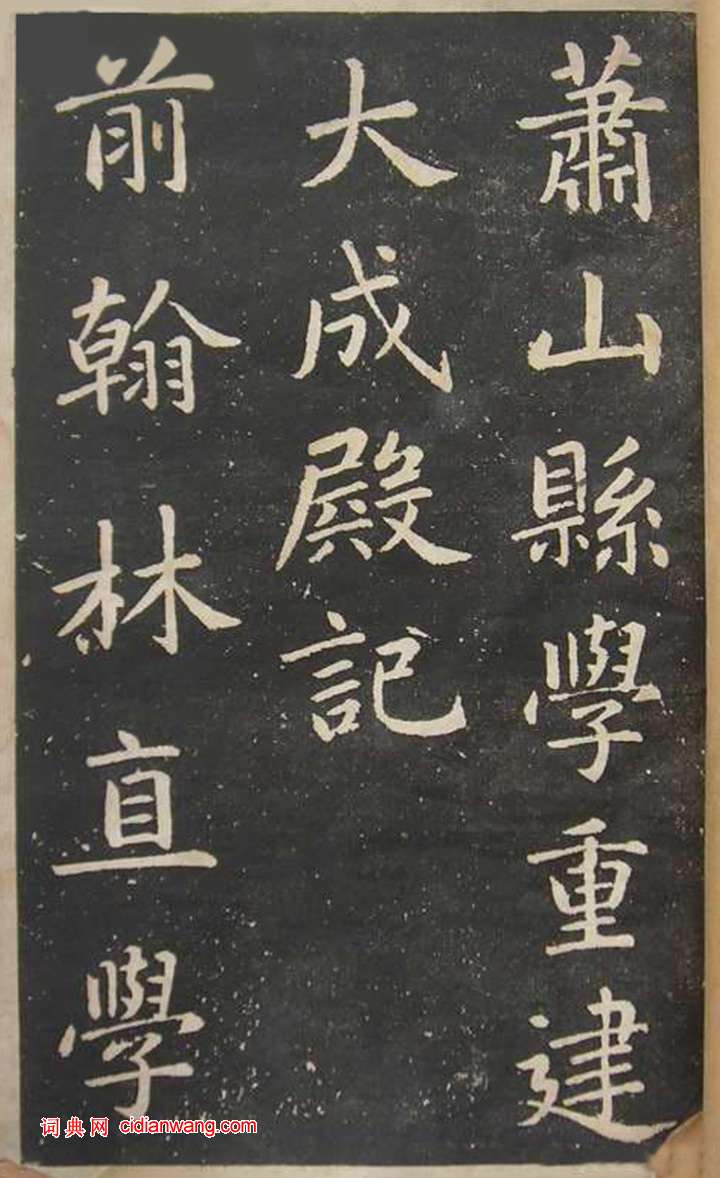 蕭山縣學重建
大成殿記
前翰林直學
词典网 cidianwang.com